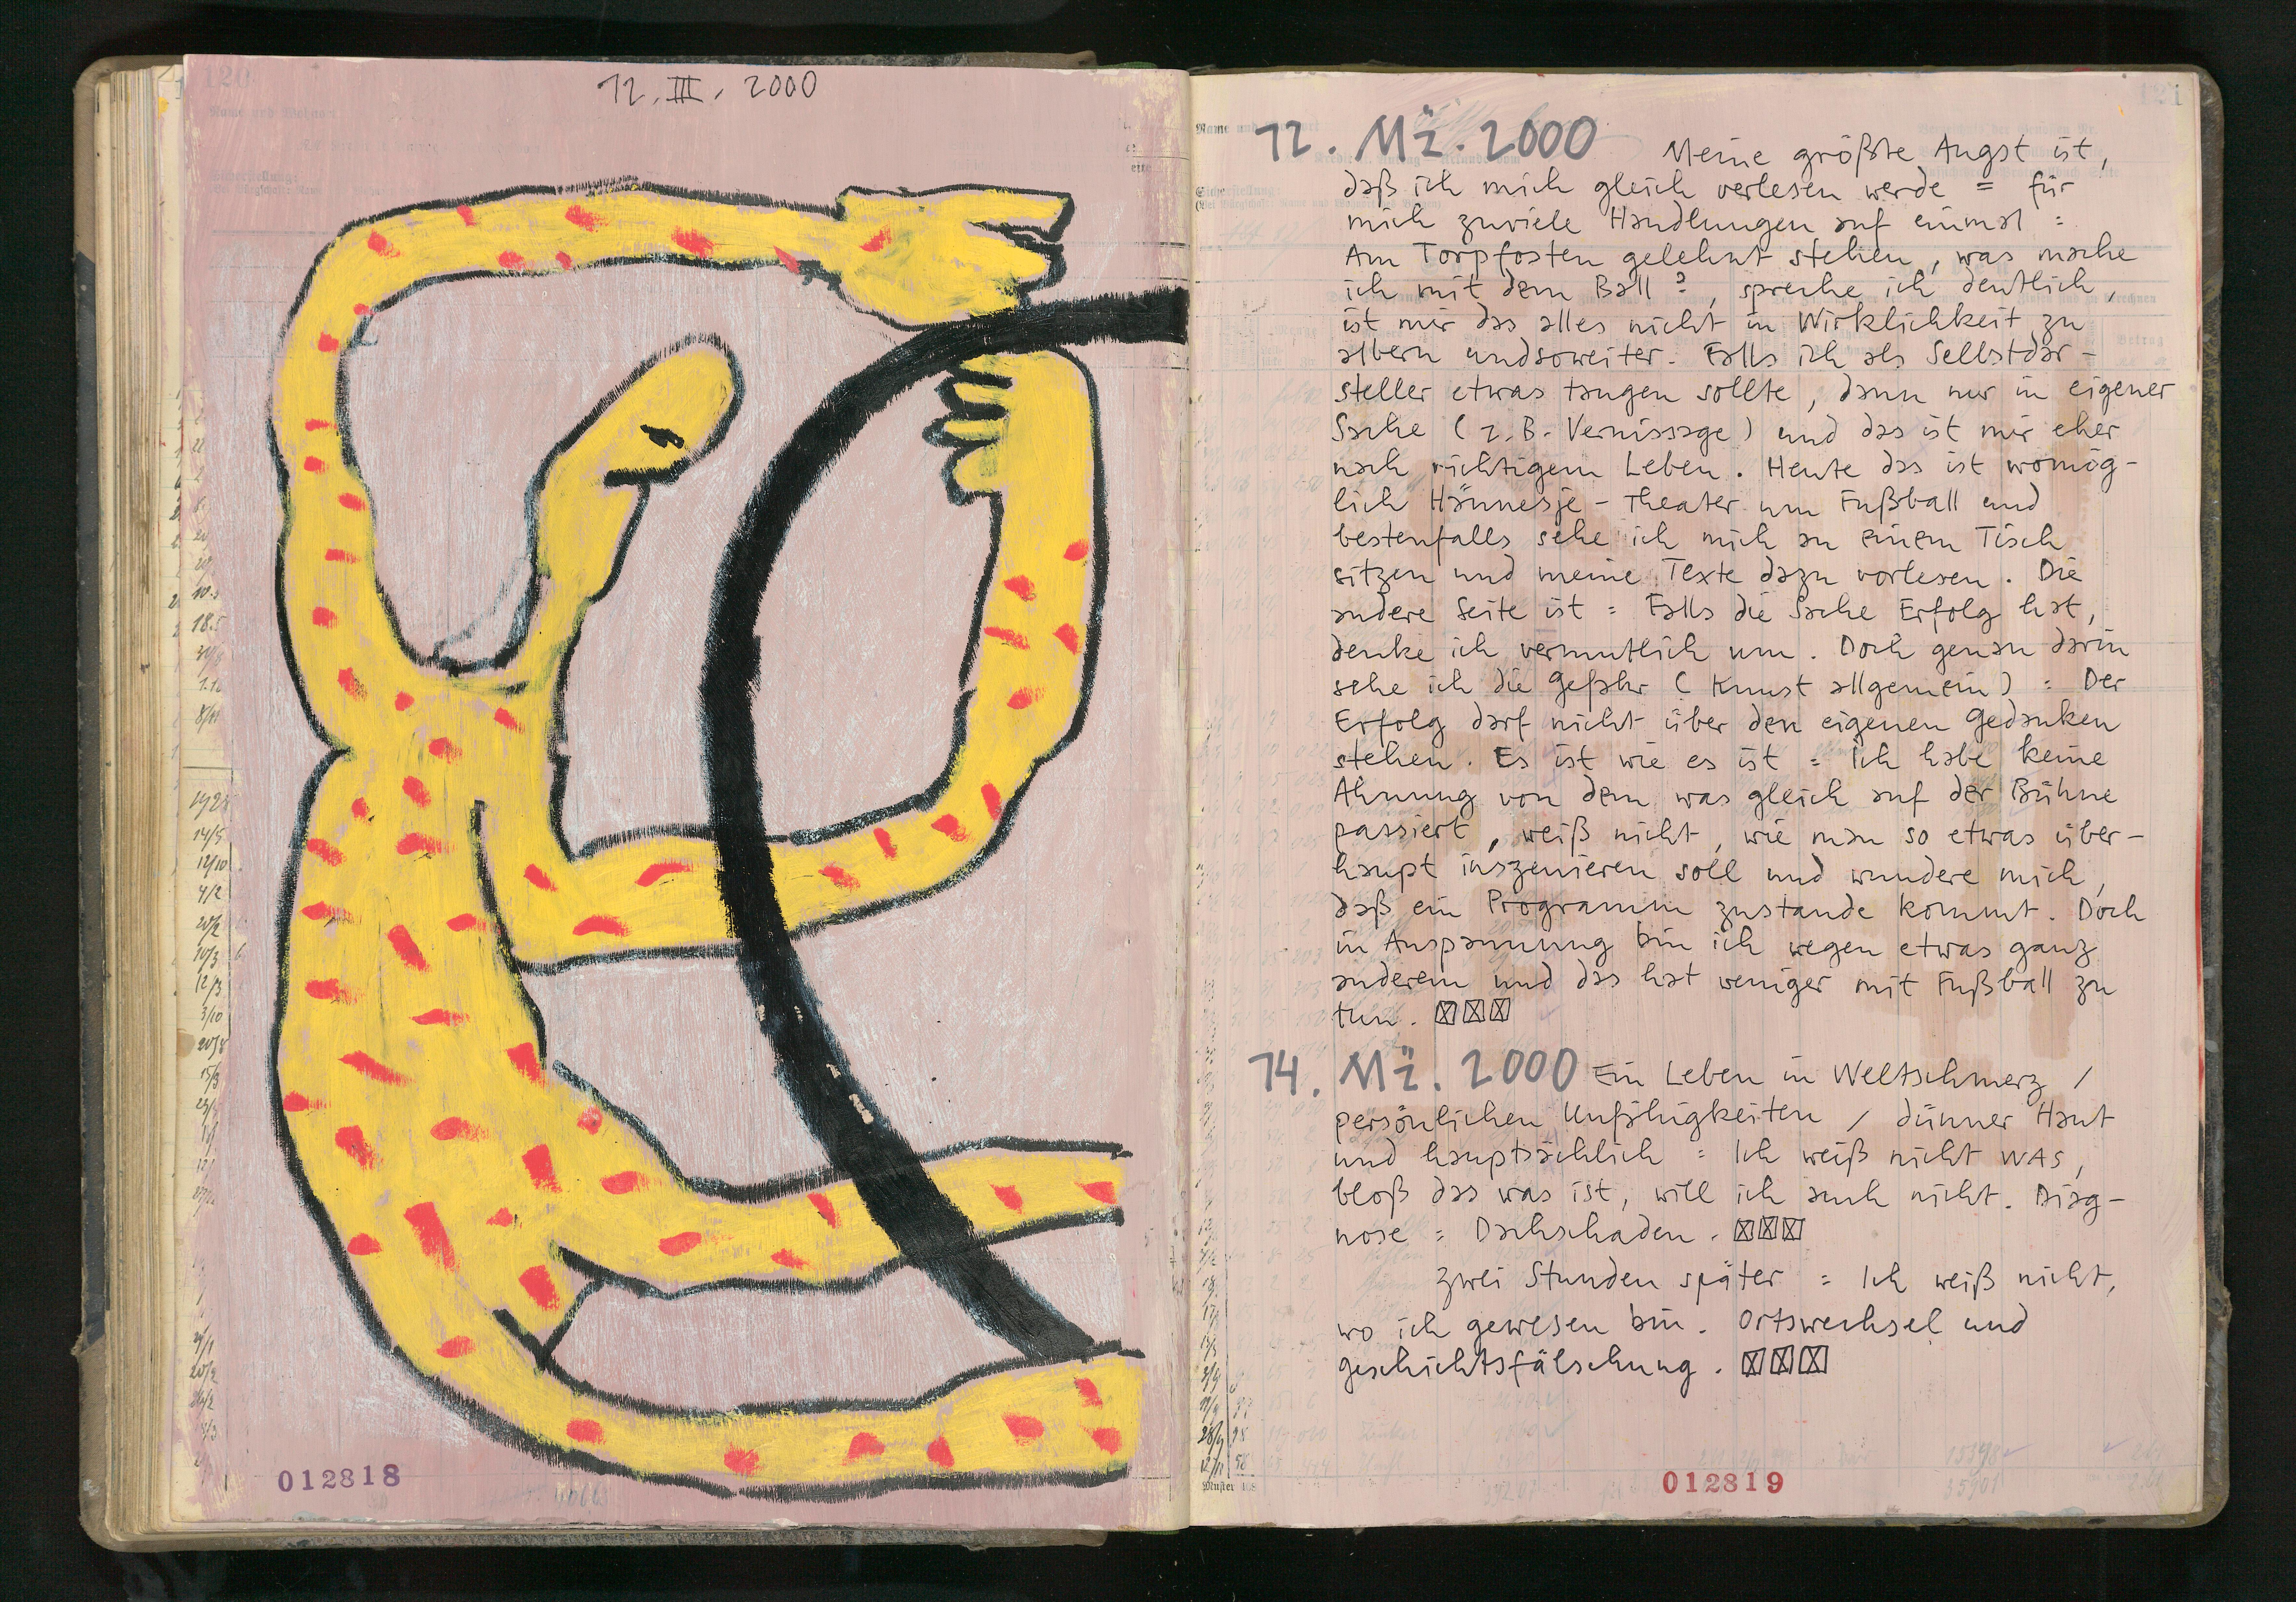 120
12. III. 2000
012818
121
12. Mä. 2000 Meine größte Angst ist,
daß ich mich gleich verlesen werde = für
mich zuviele Handlungen auf einmal =
Am Torpfosten gelehnt stehen, was mache
ich mit dem Ball?, spreche ich deutlich,
ist mir das alles nicht in Wirklichkeit zu
albern undsoweiter. Falls ich als Selbstdar-
steller etwas taugen sollte, dann nur in eigener
Sache (z.B. Vernissage) und das ist mir eher
nach richtigem Leben. Heute das ist womög-
lich Hännesje-Theater um Fußball und
bestenfalls sehe ich mich an einem Tisch
sitzen und meine Texte dazu vorlesen. Die
andere Seite ist = Falls die Sache Erfolg hat,
denke ich vermutlich um. Doch genau darin
sehe ich die Gefahr (Kunst allgemein) = Der
Erfolg darf nicht über den eigenen Gedanken
stehen. Es ist wie es ist = Ich habe keine
Ahnung von dem was gleich auf der Bühne
passiert, weiß nicht, wie man so etwas über-
haupt inszenieren soll und wundere mich,
daß ein Programm zustande kommt. Doch
in Anspannung bin ich wegen etwas ganz
anderem und das hat weniger mit Fußball zu
tun. ☒☒☒
14. Mä. 2000 Ein Leben in Weltschmerz /
persönlichen Unfähigkeiten / dünner Haut
und hauptsächlich = Ich weiß nicht WAS,
bloß das was ist, will ich auch nicht. Diag-
nose = Dachschaden. ☒☒☒
zwei Stunden später = Ich weiß nicht,
wo ich gewesen bin. Ortswechsel und
geschichtsfälschung. ☒☒☒
Muster
012819